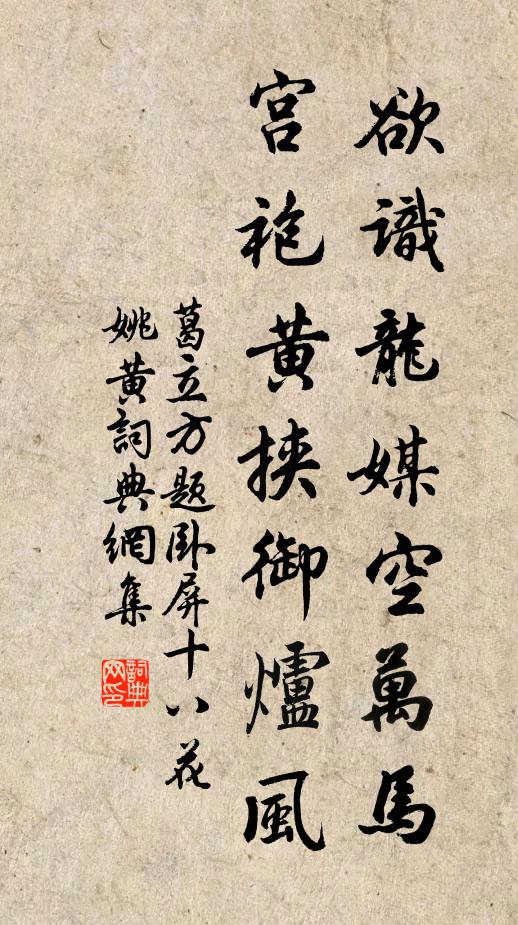 欲識龍媒空萬馬
宮袍黃挾御爐風
葛立方題卧屏十八花
姚黃詞典網集
詞典網印